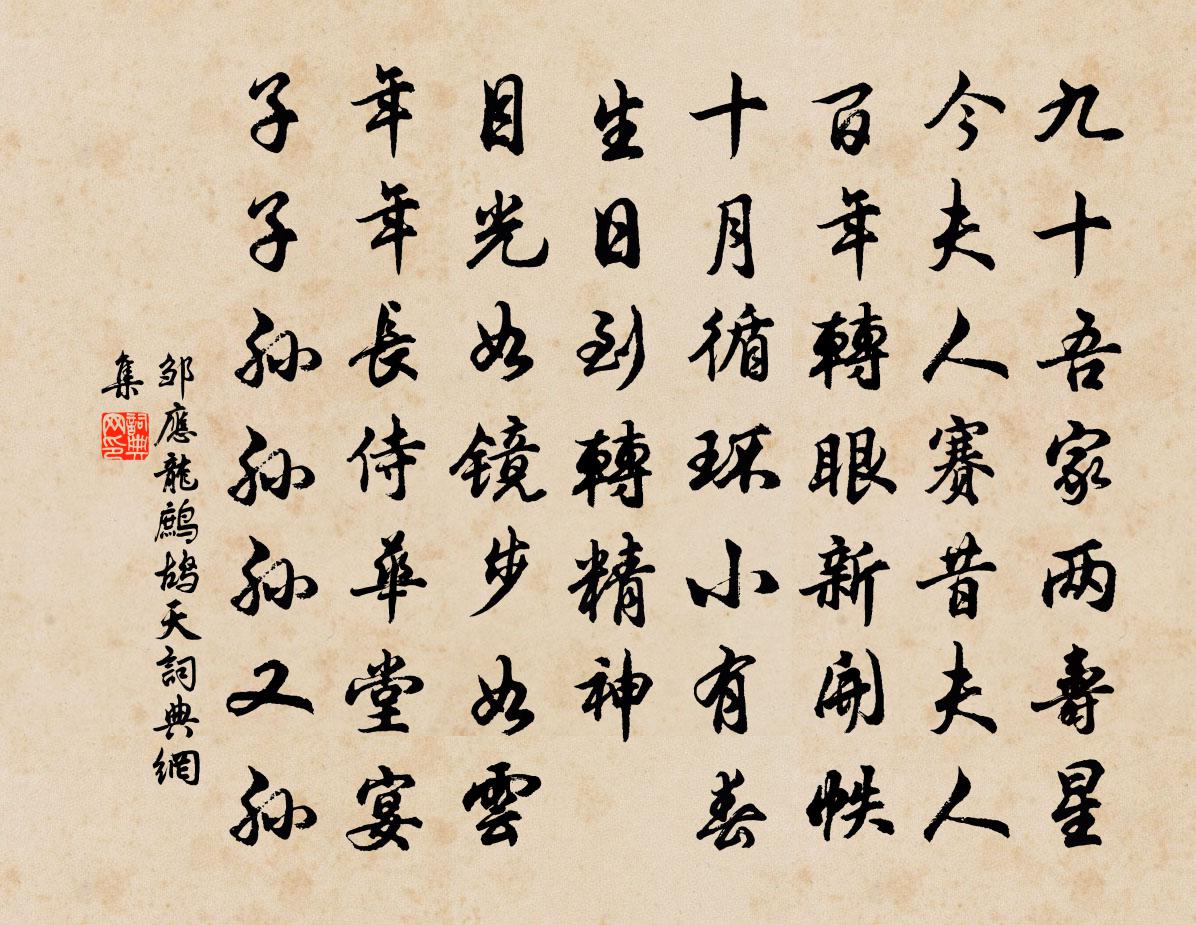 九十吾家两壽星
今夫人賽昔夫人
百年轉眼新開帙
十月循环小有春
生日到轉精神
目光如镜步如雲
年年長侍華堂宴
子子孙孙孙又孙
邹應龍鷓鸪天詞典網
集
詞典网印